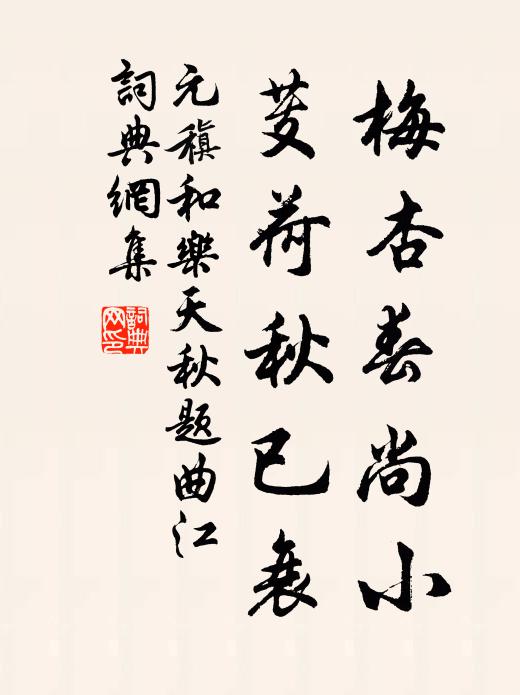 梅杏春尚小
芰荷秋已衰
元稹和樂天秋題曲江
詞典網集
詞典网印